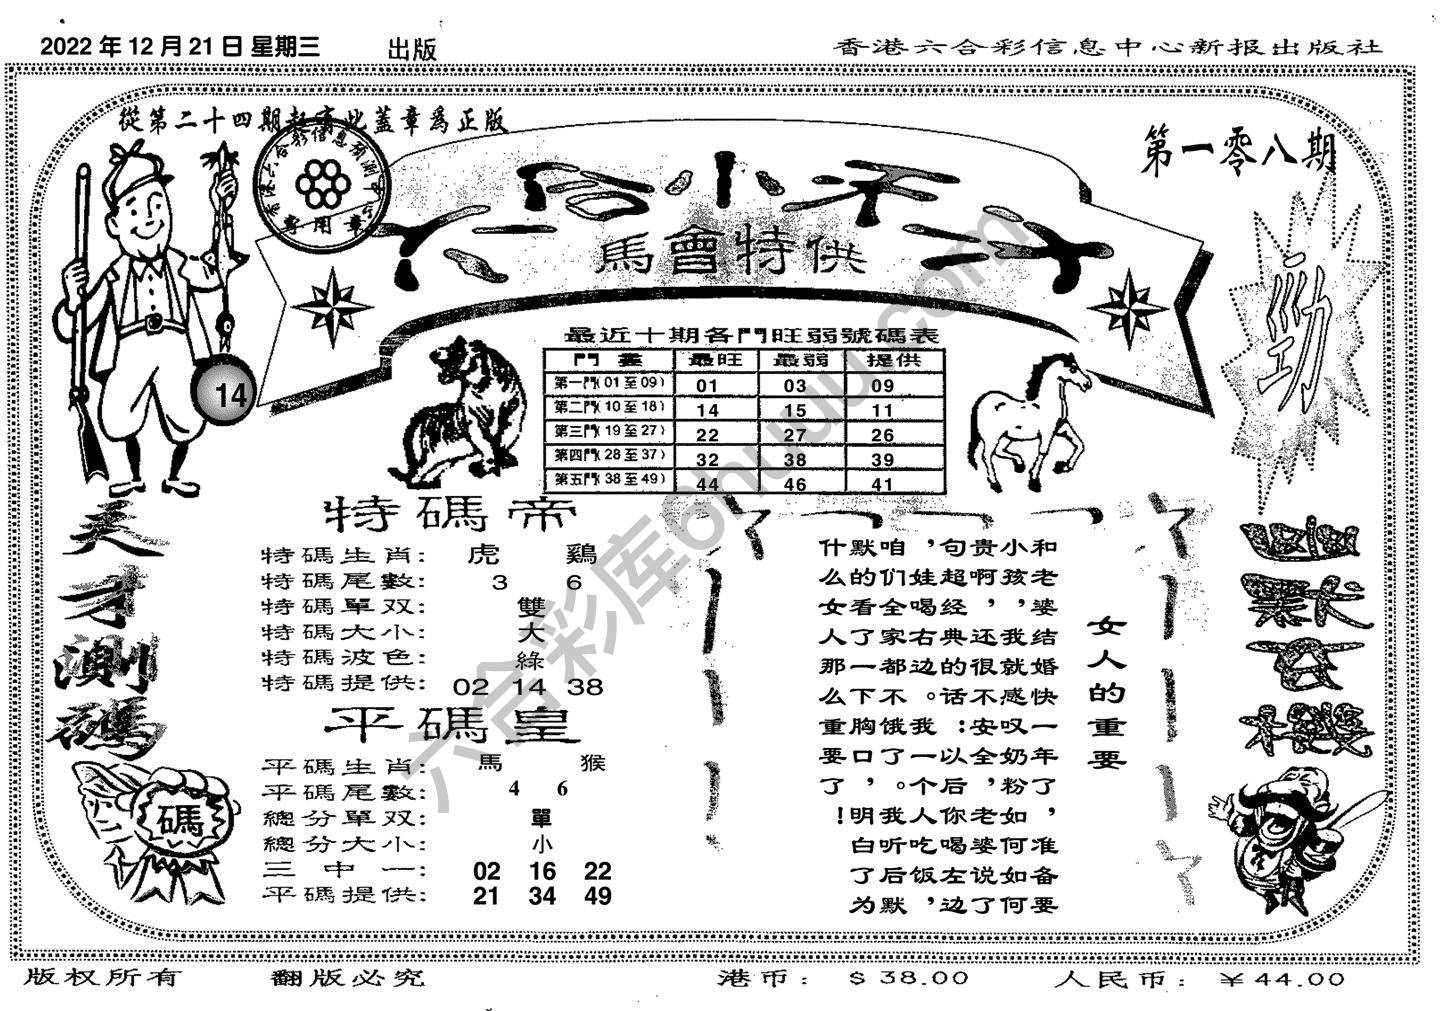 2022 年 12 月 21 日 星期三
出版
香港六合彩信息中心新报出版社
從第二十四期起有此蓋章爲正版
第一零八期
專用章
馬會特供
勁
14
最近十期各門旺弱號碼表
門 最旺 最弱 提供
第一門(01至09) 01 03 09
第二門(10至18) 14 15 11
第三門(19至27) 22 27 26
第四門(28至37) 32 38 39
第五門(38至49) 44 46 41
天才測碼
碼
特碼帝
特碼生肖: 虎 鷄
特碼尾數: 3 6
特碼單双: 雙
特碼大小: 大
特碼波色: 綠
特碼提供: 02 14 38
平碼皇
平碼生肖: 馬 猴
平碼尾數: 4 6
總分單双: 單
總分大小: 小
三中一: 02 16 22
平碼提供: 21 34 49
女人的重要
和老婆结婚快一年了，准备要
小孩，我就感叹奶粉如何如何
贵啊，还很不安全，老婆说了
句超经典的话：以后你喝左边
，娃喝右边。我一个人吃饭，
咱们全家都不饿了。我听后默
默的看了一下胸口，明白了为
什么女人那么重要了！
六合彩库6huuu.com
版权所有
翻版必究
港币: $ 38.00
人民币: ¥ 44.00